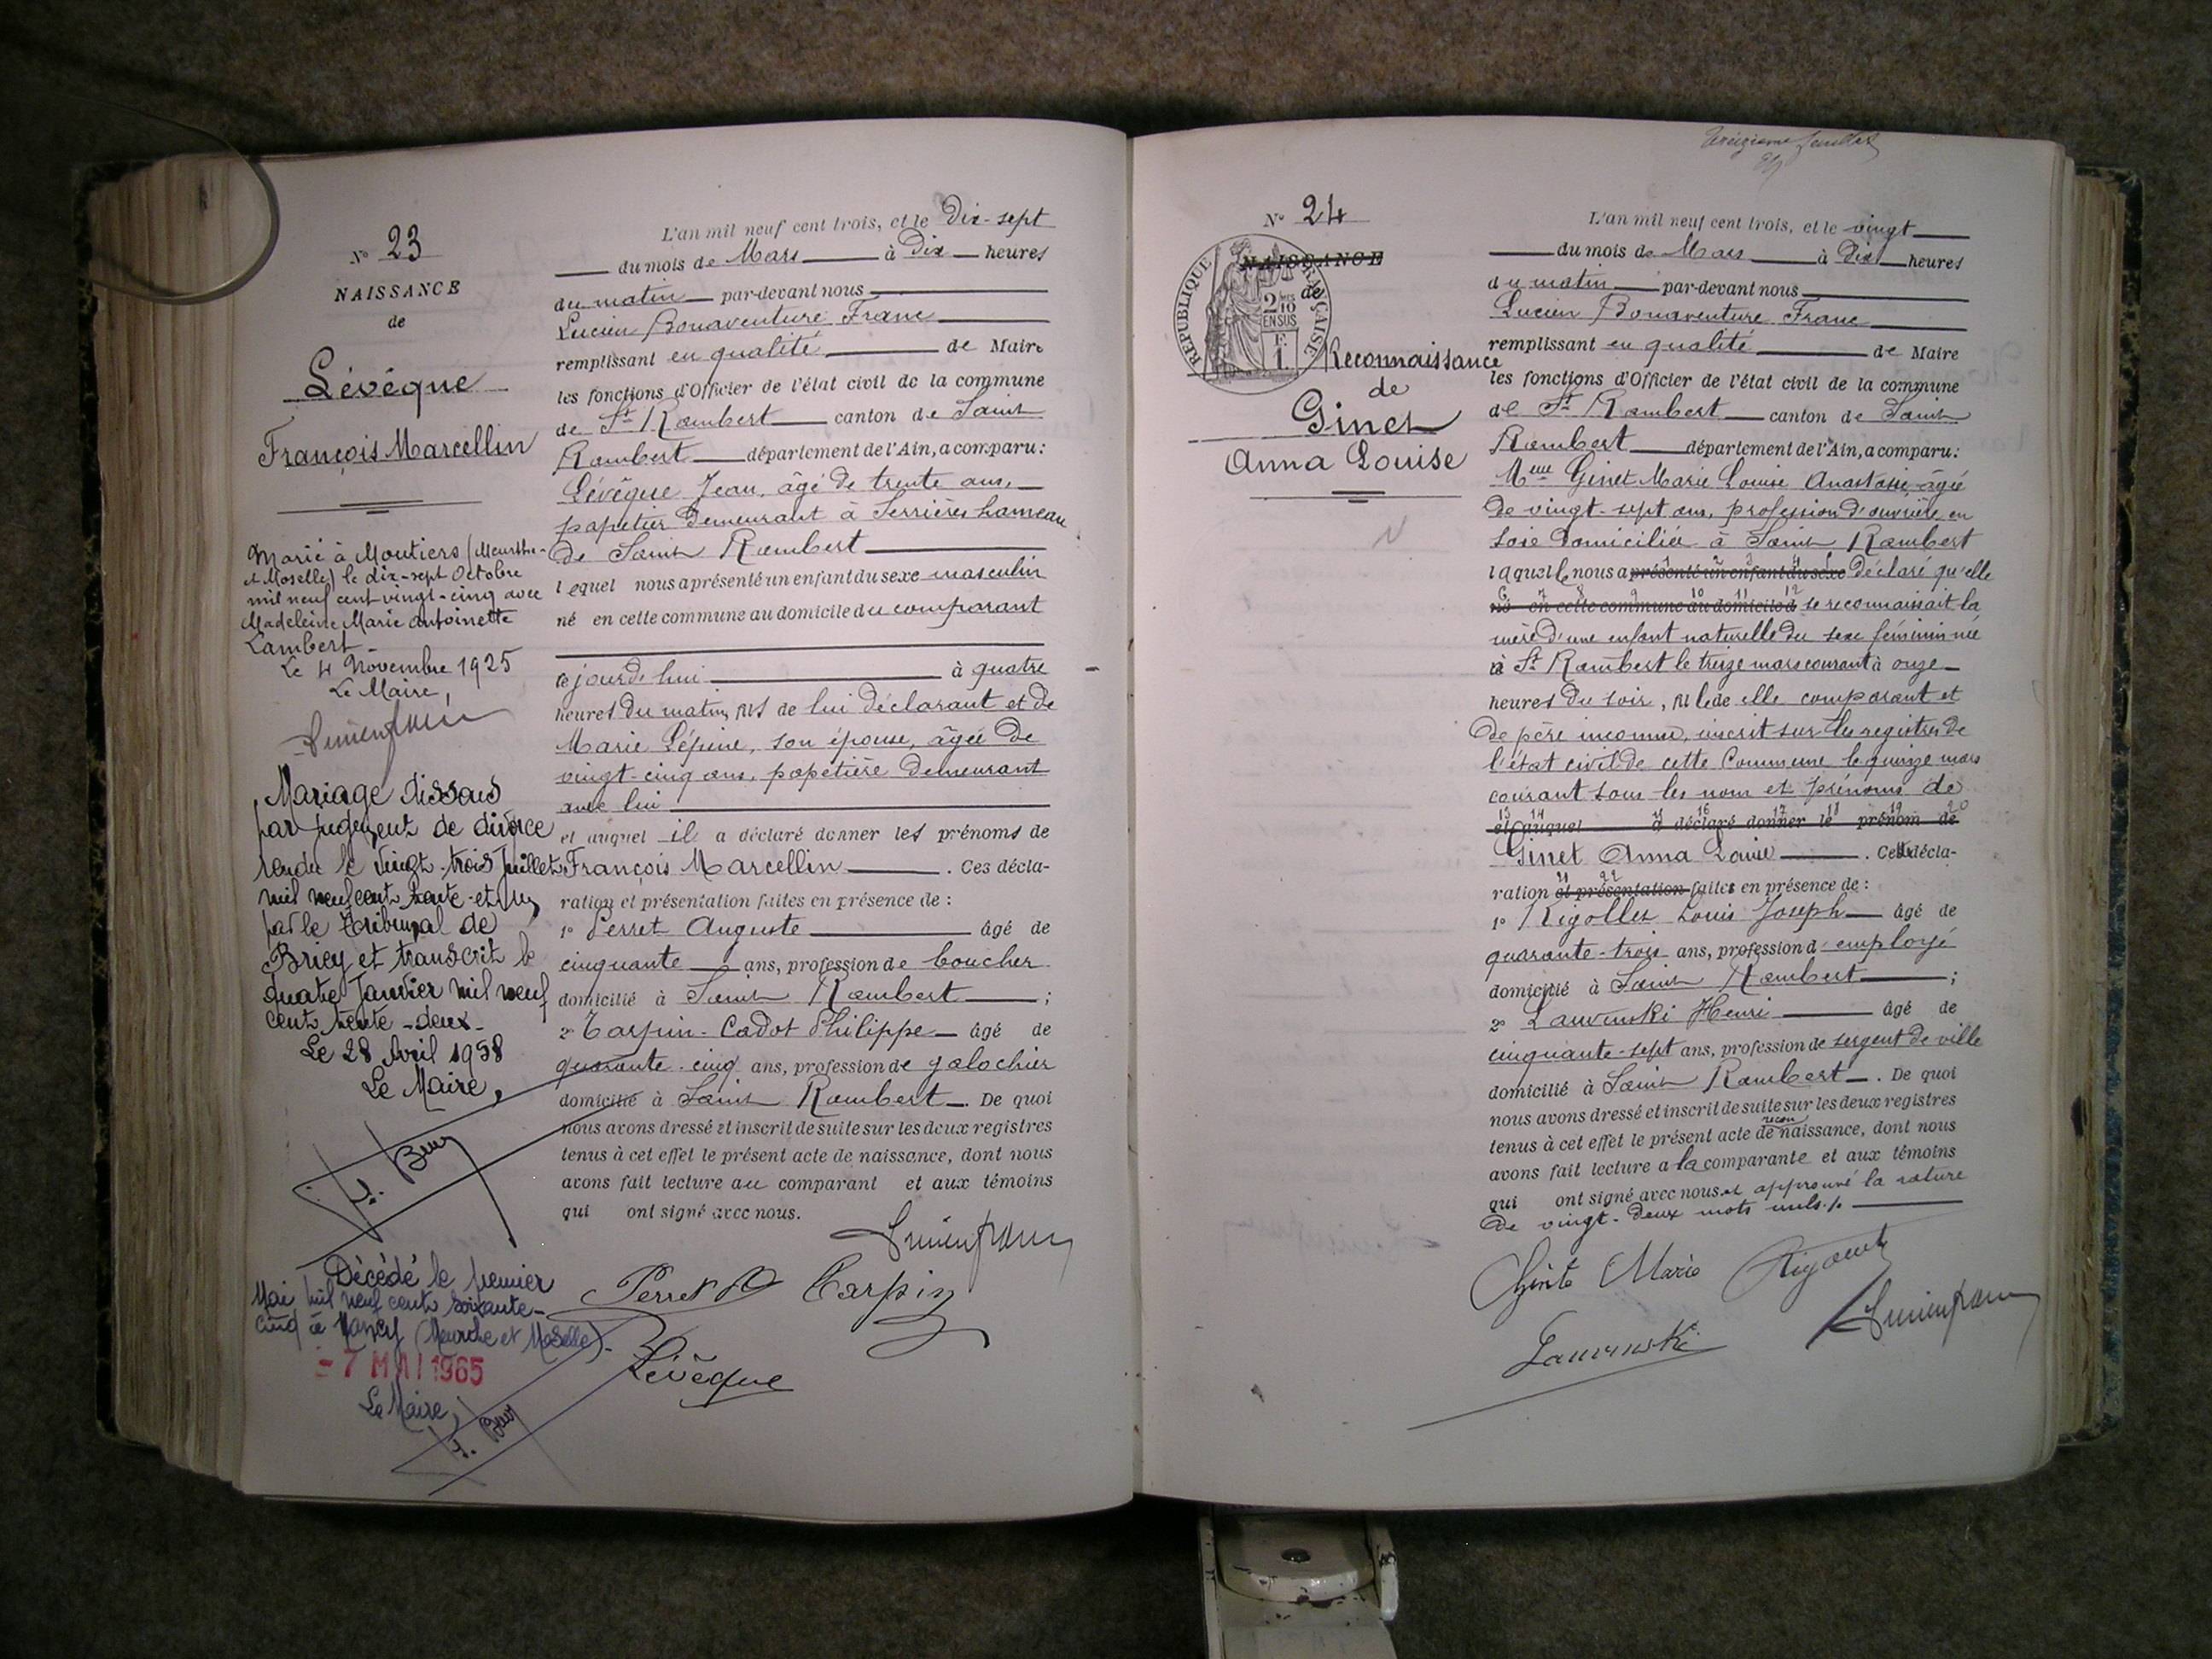 N° 23
NAISSANCE
de
Lévêque
François Marcellin
Marié à Moutiers (Meurthe-
et Moselle) le dix-sept Octobre
mil neuf cent vingt-cinq avec
Madeleine Marie Antoinette
Lambert -
Le 4 Novembre 1925
Le Maire,
Mariage dissous
par jugement de divorce
rendu le vingt-trois Juillet
mil neuf cent trente-et-un
par le Tribunal de
Briey et transcrit le
quatre Janvier mil neuf
cent trente-deux-
Le 28 Avril 1958
Le Maire,
Décédé le premier
Mai mil neuf cent soixante-
cinq à Nancy (Meurthe et Moselle).
- 7 MAI 1965
Le Maire,
L'an mil neuf cent trois, et le Dix-sept
du mois de Mars à Dix heures
du matin par-devant nous
Lucien Bonaventure Franc
remplissant en qualité de Maire
les fonctions d'Officier de l'état civil de la commune
de St Rambert canton de Saint
Rambert département de l'Ain, a comparu:
Lévêque Jean, âgé de trente ans,
papetier demeurant à Serrières hameau
de Saint Rambert
lequel nous a présenté un enfant du sexe masculin
né en cette commune au domicile du comparant
ce jourd'hui à quatre
heures du matin, fils de lui déclarant et de
Marie Lépine, son épouse, âgée de
vingt-cinq ans, papetière demeurant
avec lui
et auquel il a déclaré donner les prénoms de
François Marcellin. Ces décla-
ration et présentation faites en présence de :
1° Perret Auguste âgé de
cinquante ans, profession de boucher
domicilié à Saint Rambert ;
2° Tarpin-Cadot Philippe âgé de
quarante-cinq ans, profession de galochier
domicilié à Saint Rambert. De quoi
nous avons dressé et inscrit de suite sur les deux registres
tenus à cet effet le présent acte de naissance, dont nous
avons fait lecture au comparant et aux témoins
qui ont signé avec nous.
Perret A Tarpin
Lévêque
Treizième feuillet
N° 24
NAISSANCE
de
RÉPUBLIQUE FRANÇAISE
2/10
EN SUS
F.
1.
Reconnaissance
de
Ginet
Anna Louise
L'an mil neuf cent trois, et le vingt
du mois de Mars à Dix heures
du matin par-devant nous
Lucien Bonaventure Franc
remplissant en qualité de Maire
les fonctions d'Officier de l'état civil de la commune
de St Rambert canton de Saint
Rambert département de l'Ain, a comparu:
Melle Ginet Marie Louise Anastasie, âgée
de vingt-sept ans, profession d'ouvrière en
soie domiciliée à Saint Rambert
laquelle nous a présenté un enfant du sexe déclaré qu'elle
né en cette commune au domicile d se reconnaissait la
mère d'une enfant naturelle du sexe féminin née
à St Rambert le treize mars courant à onze
heures du soir, fille de elle comparant et
de père inconnu, inscrit sur les registres de
l'état civil de cette Commune le quinze mars
courant sous les nom et prénoms de
et auquel a déclaré donner le prénom de
Ginet Anna Louise. Cette décla-
ration et présentation faites en présence de :
1° Rigollet Louis Joseph âgé de
quarante-trois ans, profession d'employé
domicilié à Saint Rambert ;
2° Lawenski Henri âgé de
cinquante-sept ans, profession de sergent de ville
domicilié à Saint Rambert. De quoi
nous avons dressé et inscrit de suite sur les deux registres
tenus à cet effet le présent acte de reconnaissance, dont nous
avons fait lecture à la comparante et aux témoins
qui ont signé avec nous et approuvé la rature
de vingt-deux mots nuls ./.
Ginet Marie
Lawenski